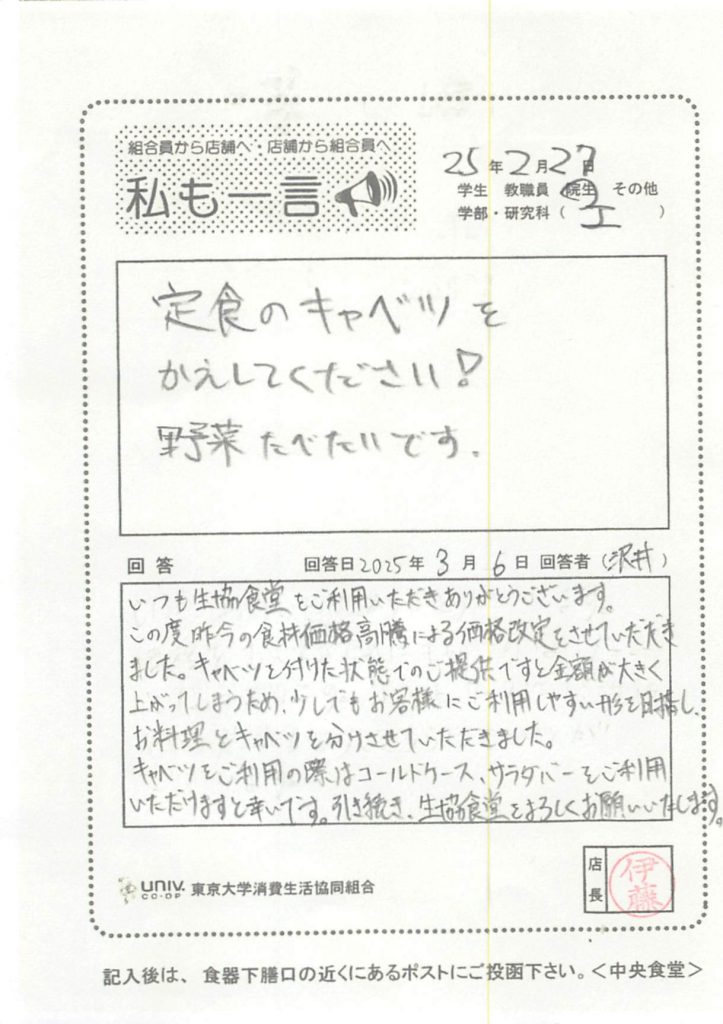 組合員から店舗へ・店舗から組合員へ
私も一言
25年2月27日
学生 教職員 院生 その他
学部・研究科(工)
定食のキャベツを
かえしてください!
野菜たべたいです.
回答 回答日2025年3月6日 回答者(沢井)
いつも生協食堂をご利用いただきありがとうございます。
この度昨今の食材価格高騰による価格改定をさせていただき
ました。キャベツを付けた状態でのご提供ですと金額が大きく
上がってしまうため、少しでもお客様にご利用しやすい形を目指し、
お料理とキャベツを分けさせていただきました。
キャベツをご利用の際はコールドケース、サラダバーをご利用
いただけますと幸いです。引き続き、生協食堂をよろしくお願いいたします。
UNIV. CO-OP 東京大学消費生活協同組合
店長 伊藤
記入後は、食器下膳口の近くにあるポストにご投函下さい。<中央食堂>